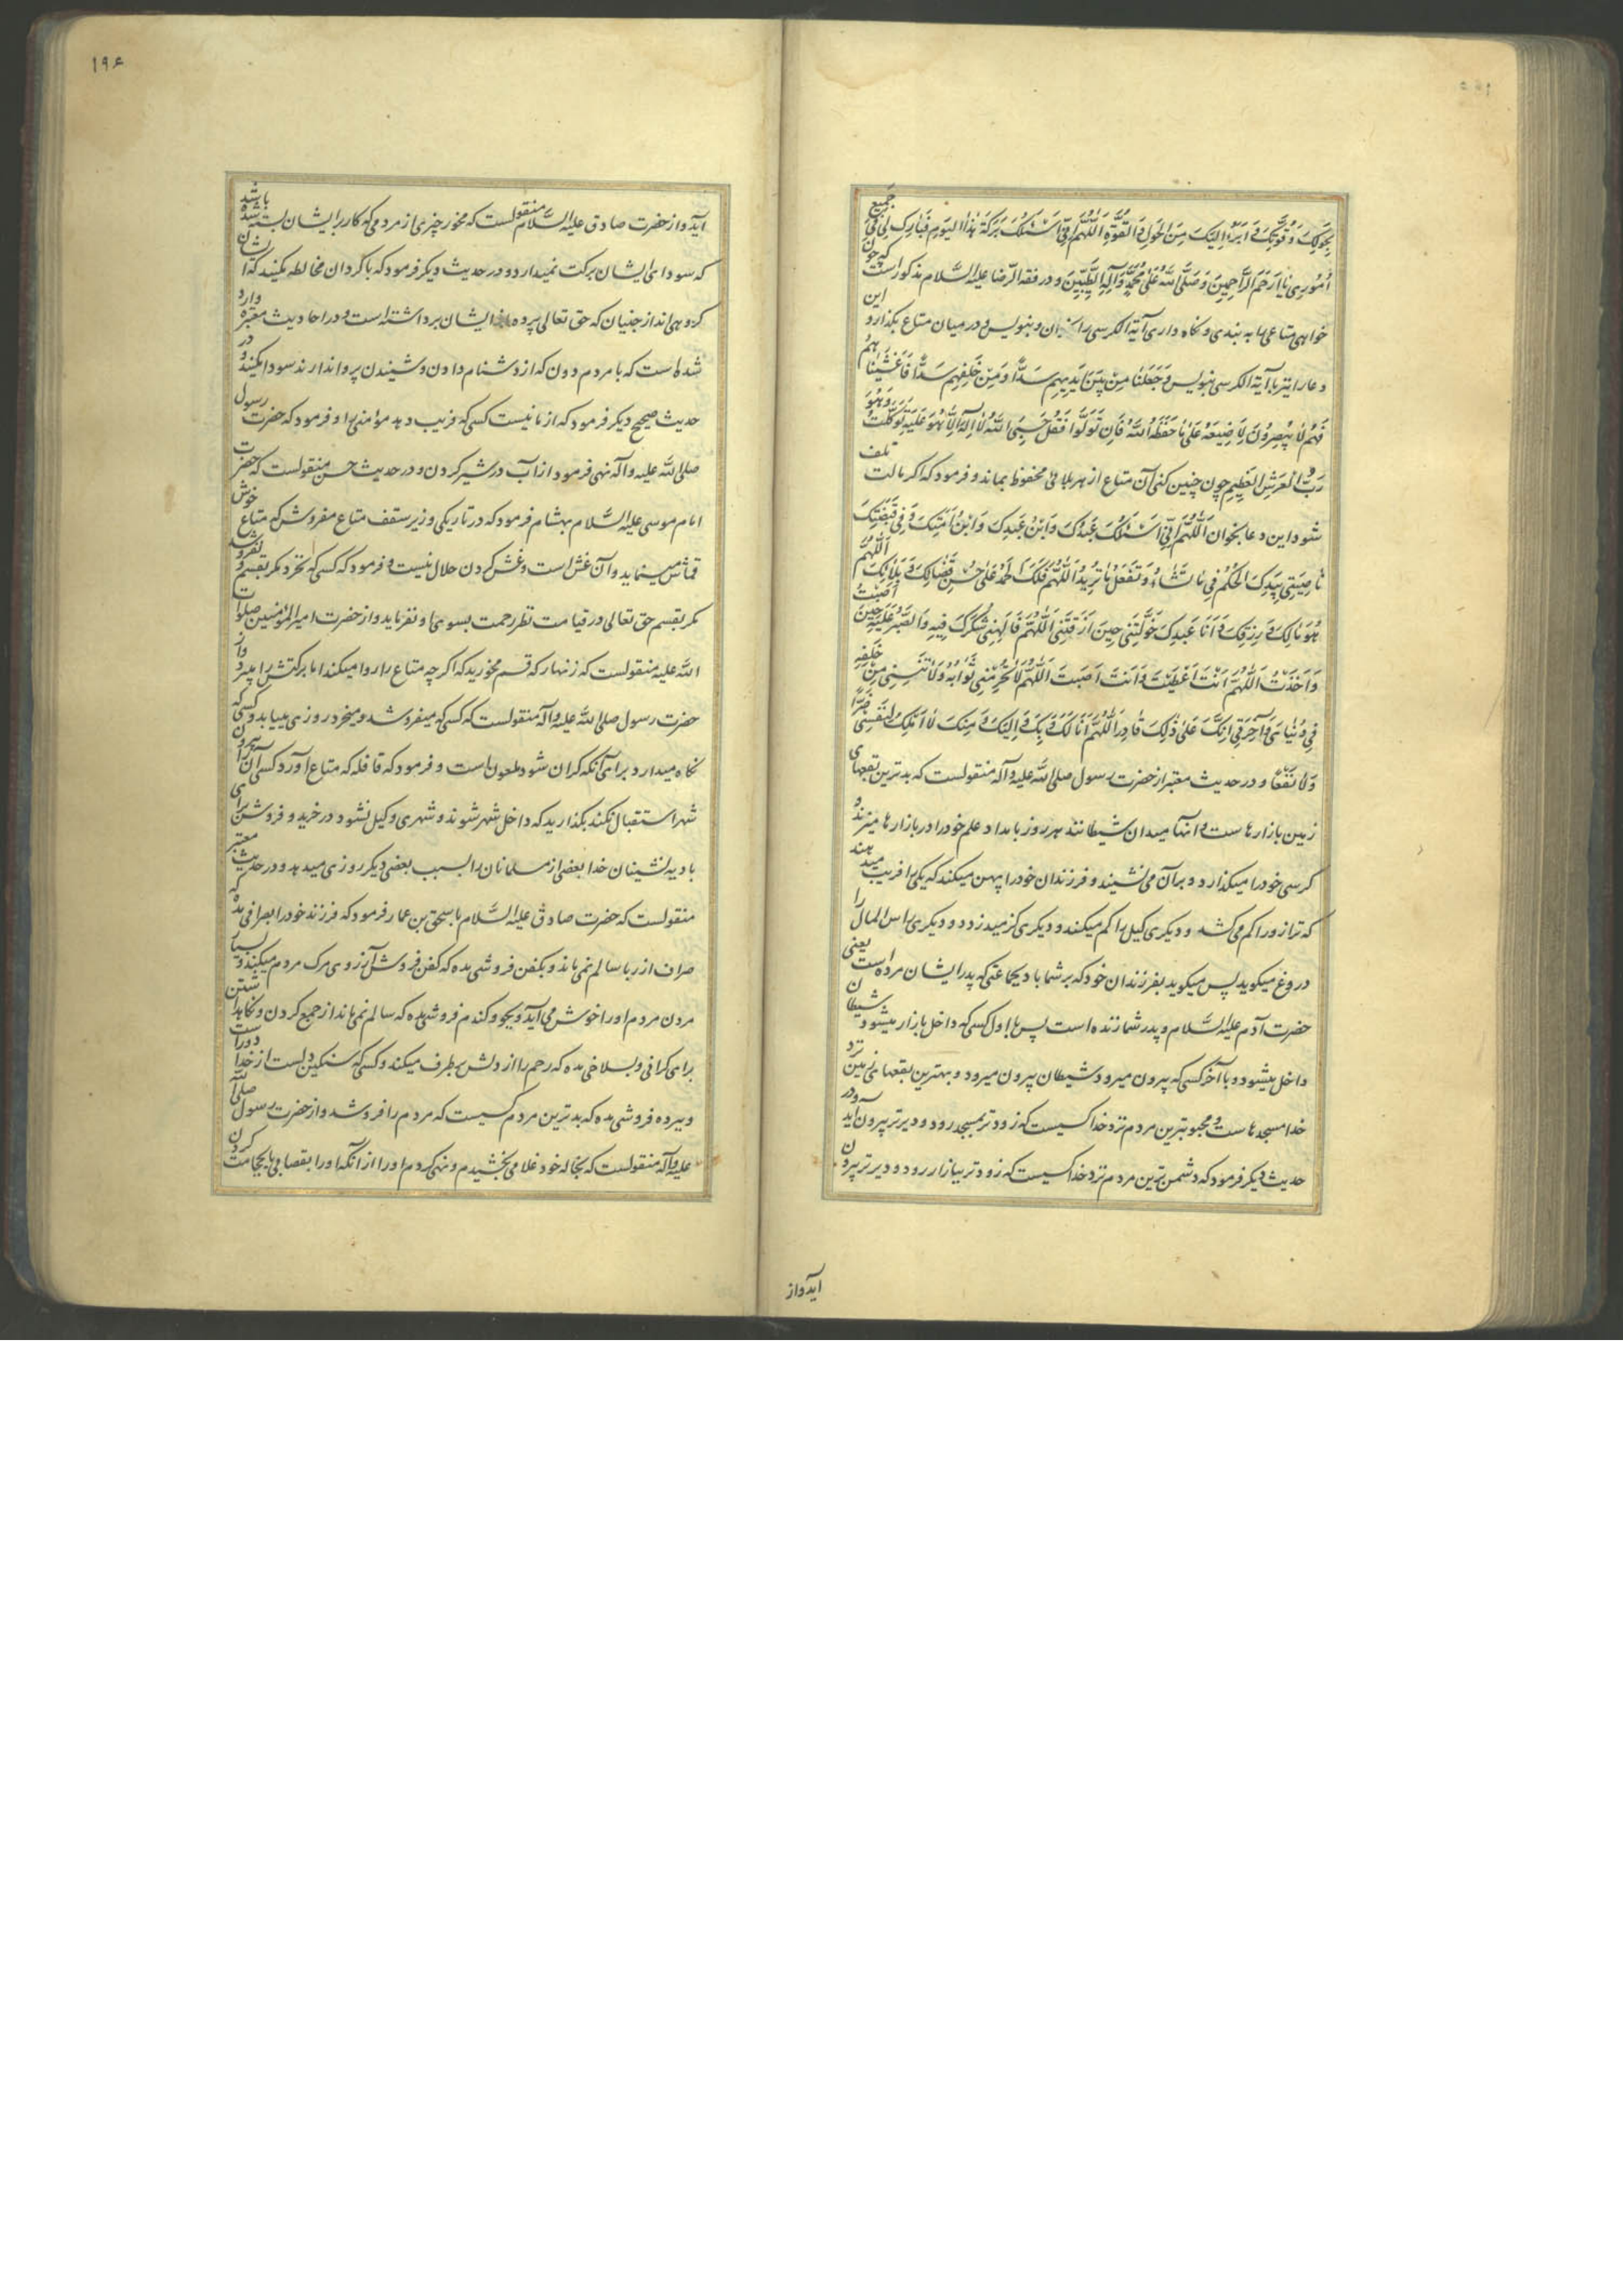 بِحَولِکَ وَ قُوَّتِکَ وَ اَبرَأُ اِلَیکَ مِنَ الحَولِ وَ القُوَّةِ اَللّٰهُمَّ اِنّی اَسئَلُکَ بَرَکَةَ هٰذَا الیَومِ فَبارِک لی فی جَمیعِ
اُمُوری یا اَرحَمَ الرّاحِمینَ وَ صَلَّی اللّٰهُ عَلیٰ مُحَمَّدٍ وَ آلِهِ الطَّیِّبینَ و در فقه الرّضا علیه السّلام مذکور است که چون
خواهی متاعی را به بندی و نکاه داری آیة الکرسی را بخوان و بنویس و در میان متاع بکذار و این
دعا را نیز با آیة الکرسی بنویس وَ جَعَلنا مِن بَینِ اَیدیهِم سَدًّا وَ مِن خَلفِهِم سَدًّا فَاَغشَیناهُم
فَهُم لا یُبصِرُونَ لا ضَیعَةَ عَلیٰ ما حَفِظَهُ اللّٰهُ فَاِن تَوَلَّوا فَقُل حَسبِیَ اللّٰهُ لا اِلٰهَ اِلّا هُوَ عَلَیهِ تَوَکَّلتُ وَ هُوَ
رَبُّ العَرشِ العَظیمِ چون چنین کنی آن متاع از هر بلائی محفوظ بماند و فرمود که اکر مالت تلف
شود این دعا بخوان اَللّٰهُمَّ اِنّی اَسئَلُکَ عَبدُکَ وَ ابنُ عَبدِکَ وَ ابنُ اَمَتِکَ وَ فی قَبضَتِکَ
ناصِیَتی بِیَدِکَ الحُکمُ فی ما تَشاءُ وَ تَفعَلُ ما تُریدُ اَللّٰهُمَّ فَلَکَ الحَمدُ عَلیٰ حُسنِ قَضائِکَ وَ بَلائِکَ اَللّٰهُمَّ
هُوَ مالُکَ وَ رِزقُکَ وَ اَنَا عَبدُکَ خَوَّلتَنی حینَ رَزَقتَنی اَللّٰهُمَّ فَاَلهِمنی شُکرَکَ فیهِ وَ الصَّبرَ عَلَیهِ حینَ اَصَبتَ
وَ اَخَذتَ اَللّٰهُمَّ اَنتَ اَعطَیتَ وَ اَنتَ اَصَبتَ اَللّٰهُمَّ لا تَحرِمنی ثَوابَهُ وَ لا تَنسَنی مِن خَلفِهِ
فی دُنیایَ وَ آخِرَتی اِنَّکَ عَلیٰ ذٰلِکَ قادِرٌ اَللّٰهُمَّ اَنَا لَکَ وَ بِکَ وَ اِلَیکَ وَ مِنکَ لا اَملِکُ لِنَفسی ضَرًّا
وَ لا نَفعًا و در حدیث معتبر از حضرت رسول صلی اللّه علیه و آله منقولست که بدترین بقعهای
زمین بازارهاست و آنها میدان شیطانند هر روز بامداد علم خود را در بازارها میزند و
کرسی خود را میکذارد و بر آن می نشیند و فرزندان خود را پهن میکند که یکی را فریب میدهند
که ترازو را کم می کشد و دیکری کیل را کم میکند و دیکری کز میدزدد و دیکری راس المال را
دروغ میکوید پس میکوید بفرزندان خود که بر شما باد بجماعتی که پدر ایشان مرده است یعنی
حضرت آدم علیه السّلام و پدر شما زنده است پس با اول کسی که داخل بازار میشود شیطان
داخل میشود و با آخر کسی که بیرون میرود شیطان بیرون میرود و بهترین بقعهای زمین نزد
خدا مسجدهاست و محبوبترین مردم نزد خدا کسیست که زودتر بمسجد رود و دیرتر بیرون آید و در
حدیث دیکر فرمود که دشمن ترین مردم نزد خدا کسیست که زودتر ببازار رود و دیرتر بیرون
آید و از
۱۹۶
آید و از حضرت صادق علیه السّلام منقولست که مخور چیزی از مردمی که کار بر ایشان بسته شده باشد
که سودای ایشان برکت نمیدارد و در حدیث دیکر فرمود که با کردان مخالطه مکنید که ایشان
کروهی اند از جنیان که حق تعالی پرده از ایشان برداشته است و در احادیث معتبره وارد
شده است که با مردم دون که از دشنام دادن و شنیدن پروا ندارند سودا مکنید و در
حدیث صحیح دیکر فرمود که از ما نیست کسی که فریب دهد مؤمنی را و فرمود که حضرت رسول
صلی اللّه علیه و آله نهی فرمود از آب در شیر کردن و در حدیث حسن منقولست که حضرت
امام موسی علیه السّلام بهشام فرمود که در تاریکی و زیر سقف متاع مفروش که متاع خوش
قماش مینماید و آن غش است و غش کردن حلال نیست و فرمود که کسی که نخرد مکر بقسم و نفروشد
مکر بقسم حق تعالی در قیامت نظر رحمت بسوی او نفرماید و از حضرت امیر المؤمنین صلوات
اللّه علیه منقولست که زنهار که قسم مخورید که اکر چه متاع را روا میکند اما برکتش را میبرد و از
حضرت رسول صلی اللّه علیه و آله منقولست که کسی که میفروشد و میخرد روزی مییابد و کسی که
نکاه میدارد برای آنکه کران شود ملعون است و فرمود که قافله که متاع آورد کسی آن را بیرون
شهر استقبال نکند بکذارید که داخل شهر شوند و شهری وکیل نشود در خرید و فروش برای
بادیه نشینان خدا بعضی از مسلمانان را بسبب بعضی دیکر روزی میدهد و در حدیث معتبر
منقولست که حضرت صادق علیه السّلام باسحق بن عمار فرمود که فرزند خود را بصرافی مده که
صراف از ربا سالم نمی ماند و بکفن فروشی مده که کفن فروش آرزوی مرک مردم میکند و بسیار
مردن مردم او را خوش می آید و بجو و کندم فروشی مده که سالم نمی ماند از جمع کردن و نکاهداشتن
برای کرانی و بسلاخی مده که رحم را از دلش برطرف میکند و کسی که سنکین دلست از خدا دور است
و ببرده فروشی مده که بدترین مردم کسیست که مردم را فروشد و از حضرت رسول صلی اللّه
علیه و آله منقولست که بخاله خود غلامی بخشیدم و نهی کردم او را از آنکه او را بقصابی یا بحجامت کردن